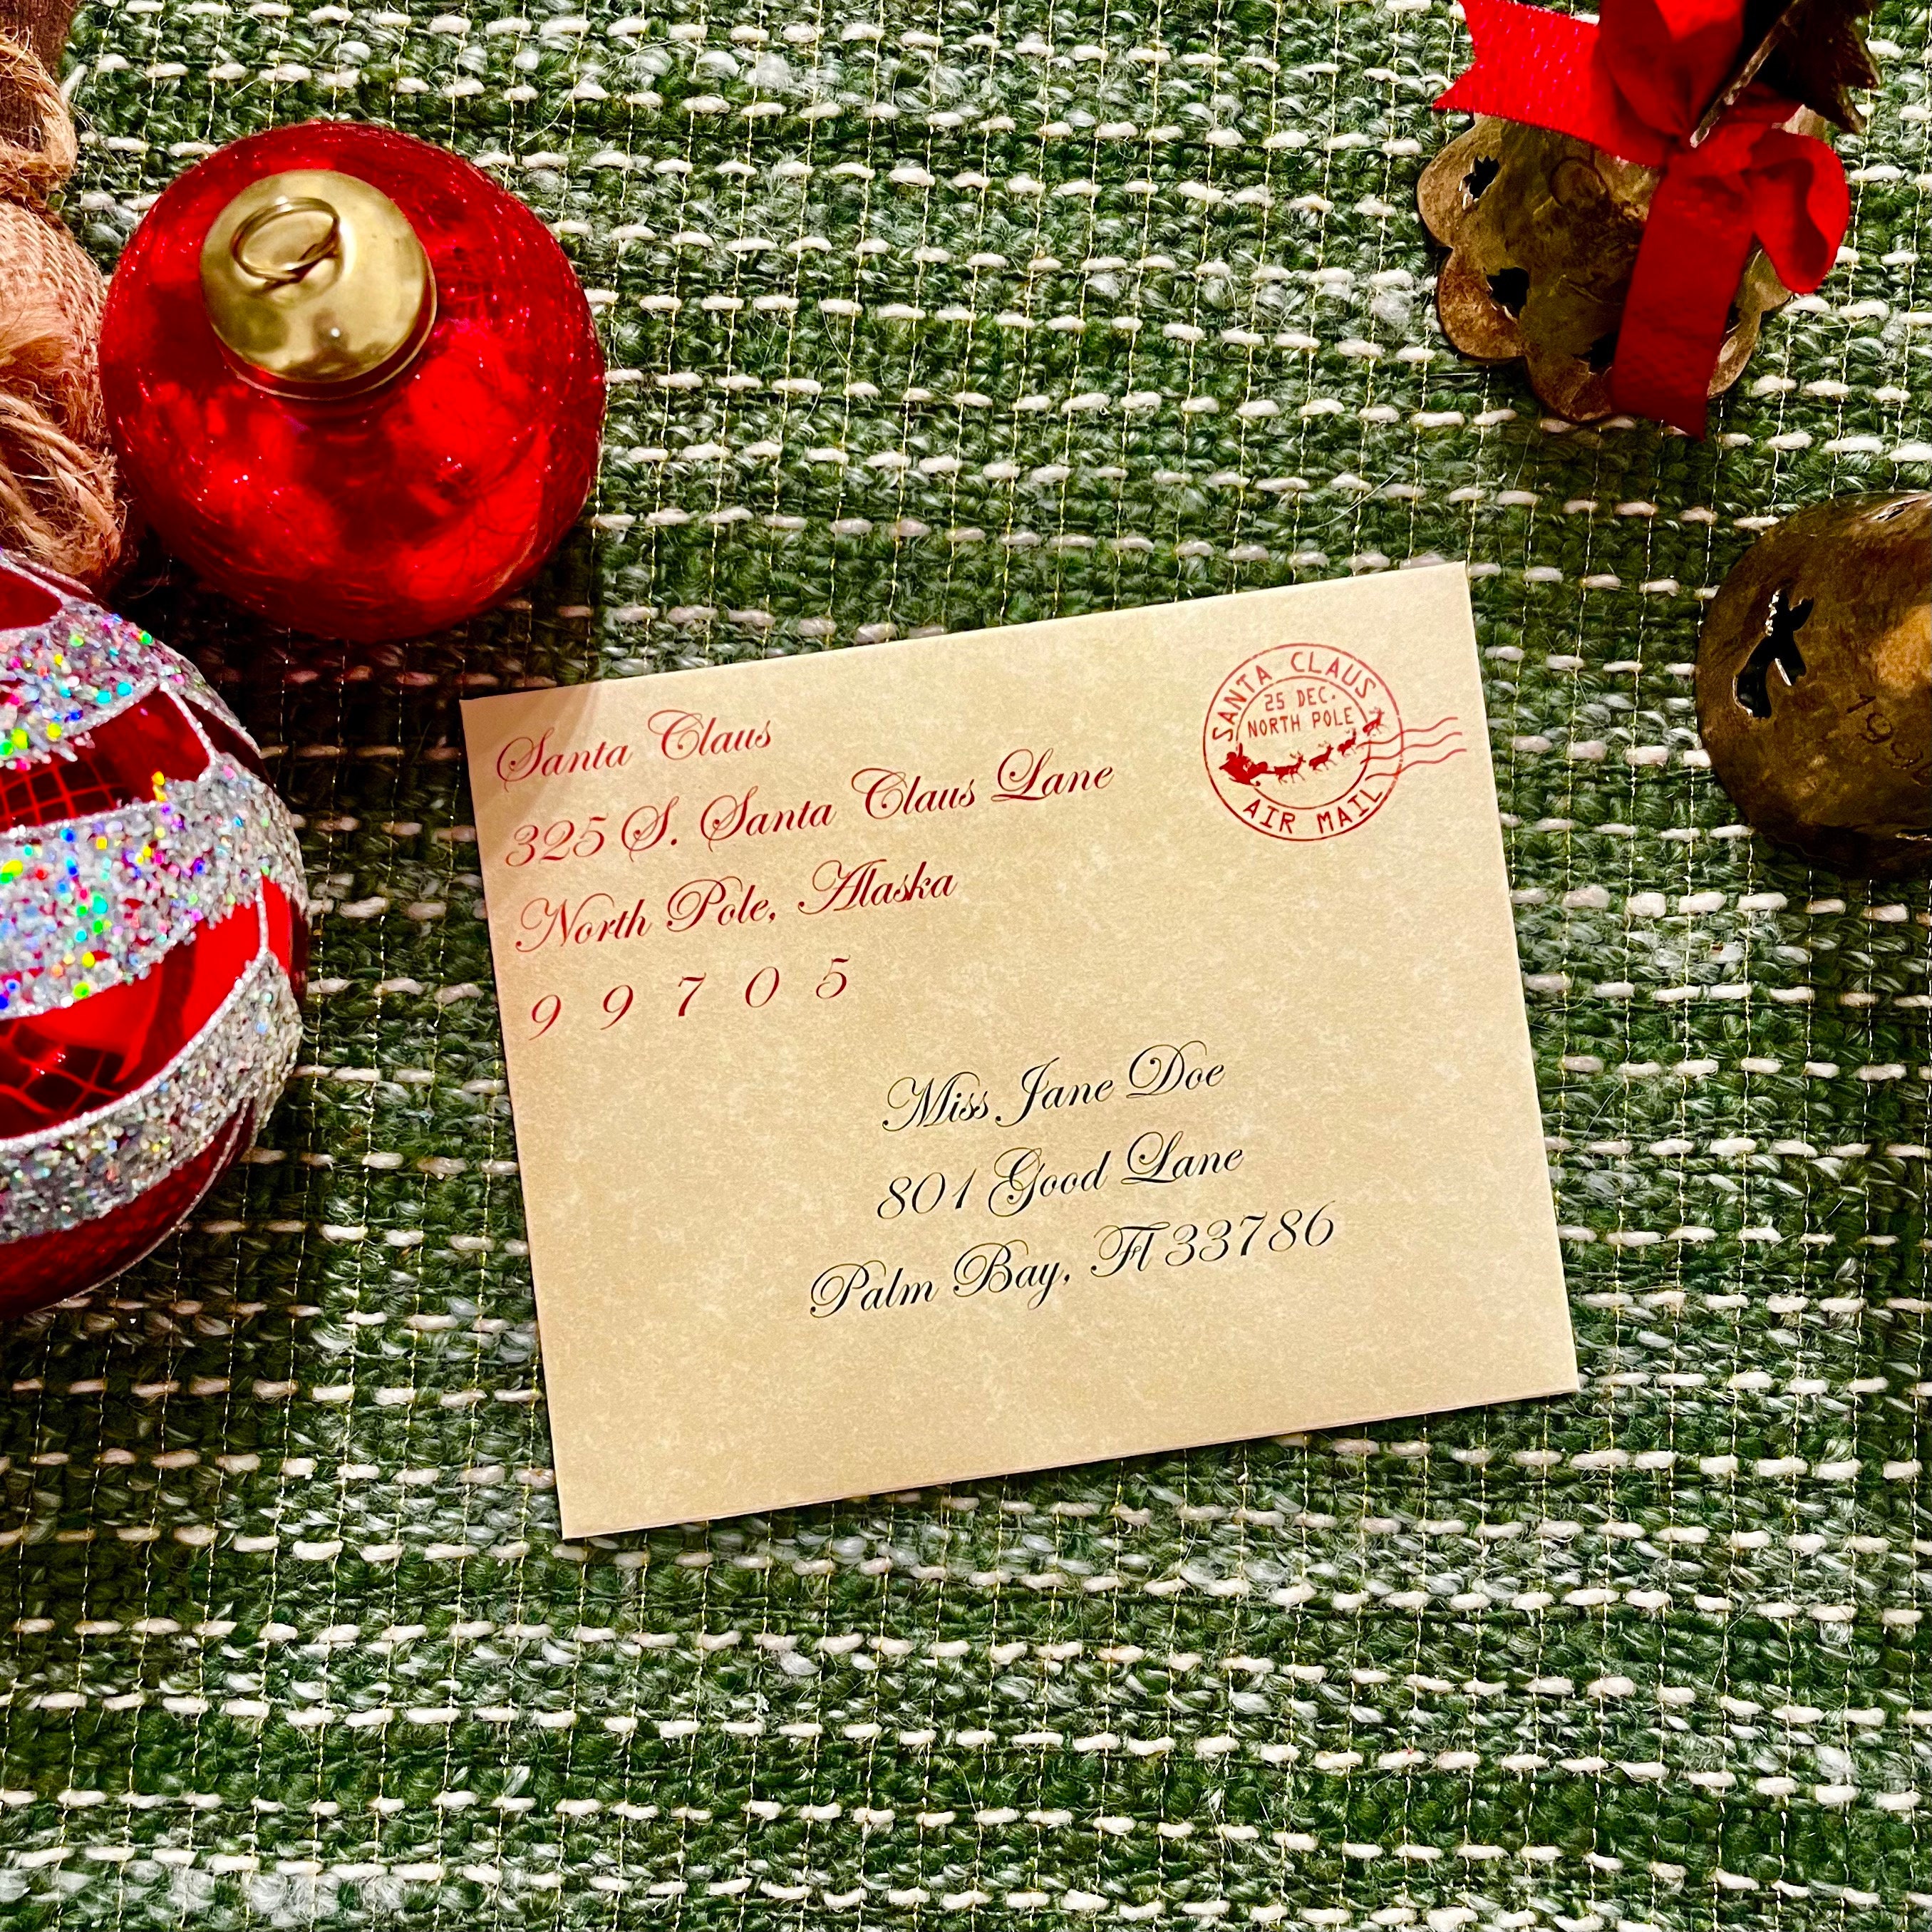 Santa Claus
325 S. Santa Claus Lane
North Pole, Alaska
9 9 7 0 5
SANTA CLAUS
25 DEC.
NORTH POLE
AIR MAIL
Miss Jane Doe
801 Good Lane
Palm Bay, Fl 33786